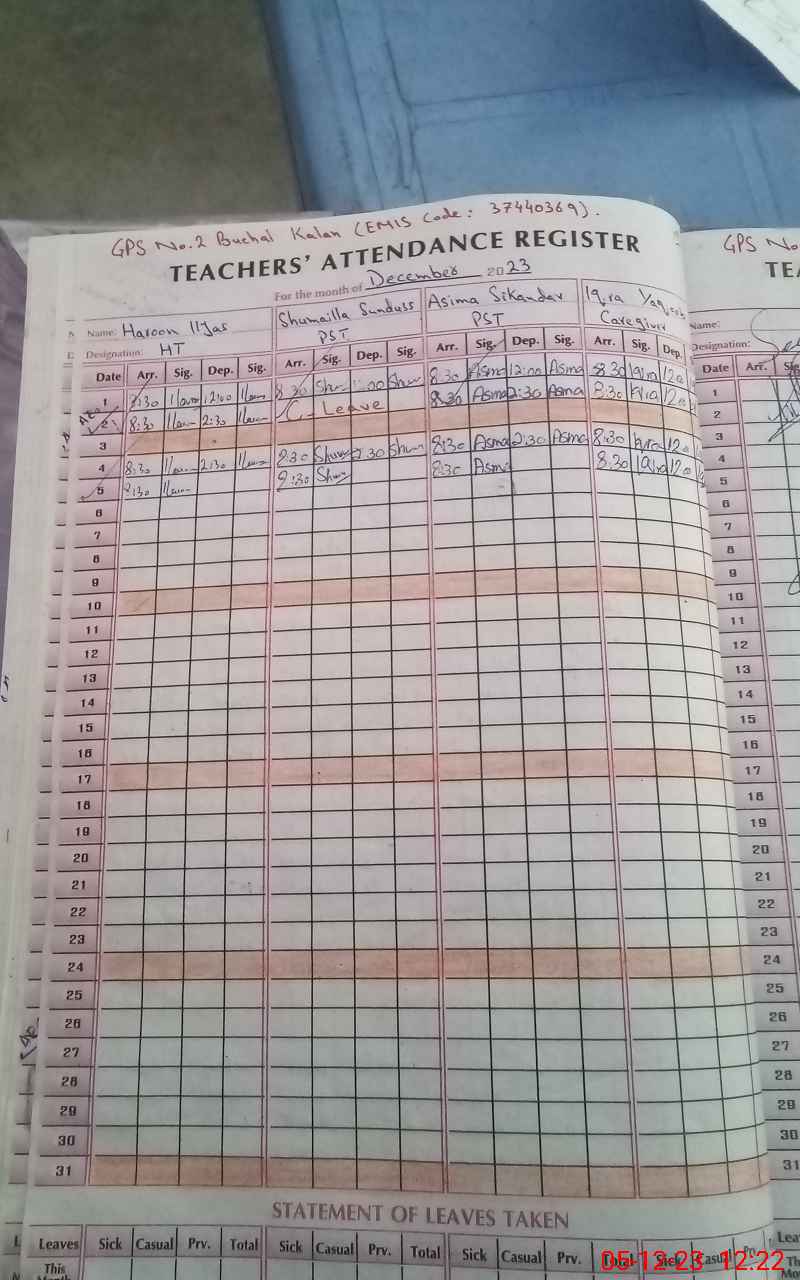 GPS No.2 Buchal Kalan (EMIS Code: 37440369).
TEACHERS' ATTENDANCE REGISTER
For the month of December 2023
Name: Haroon Ilyas Shumailla Sunduss Asima Sikandar Iqra
Designation: HT PST PST Caregiver
Date Arr. Sig. Dep. Sig. Arr. Sig. Dep. Sig. Arr. Sig. Dep. Sig. Arr. Sig. Dep.
1 8:30 12:00 8:30 8:30 Asma 12:00 Asma 8:30 Iqra
2 8:30 2:30 C-Leave 8:30 Asma 2:30 Asma 8:30 Iqra
3
4 8:30 2:30 8:30 2:30 8:30 Asma 2:30 Asma 8:30 Iqra
5 8:30 8:30 8:30 Asma 8:30 Iqra
6
7
8
9
10
11
12
13
14
15
16
17
18
19
20
21
22
23
24
25
26
27
28
29
30
31
STATEMENT OF LEAVES TAKEN
Leaves Sick Casual Prv. Total Sick Casual Prv. Total Sick Casual Prv. Total Sick Casual Prv.
This
GPS No.
TE
Name:
Designation:
Date Arr.
1
2
3
4
5
6
7
8
9
10
11
12
13
14
15
16
17
18
19
20
21
22
23
24
25
26
27
28
29
30
31
05-12-23 12:22